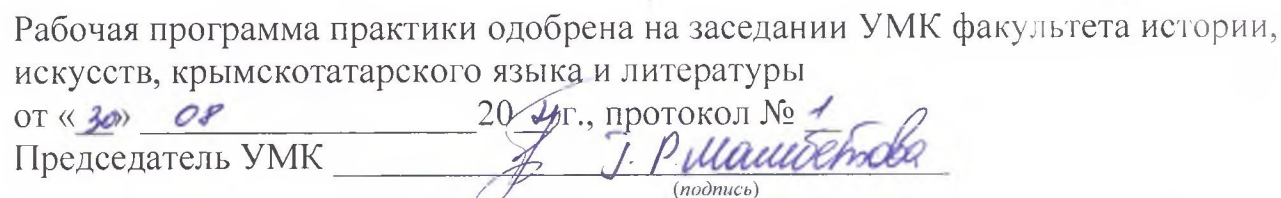 Рабочая программа практики одобрена на заседании УМК факультета истории,
искусств, крымскотатарского языка и литературы
от «30» 08 20 г., протокол № 1
Председатель УМК Р Мамбетова
(подпись)